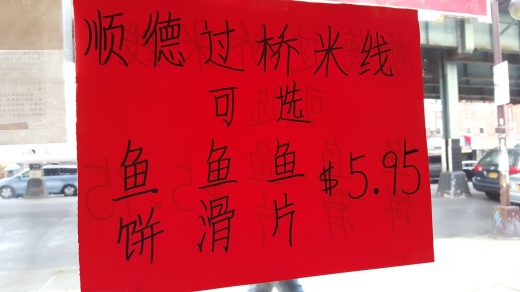 顺德过桥米线
可选
鱼饼 鱼滑 鱼片 $5.95